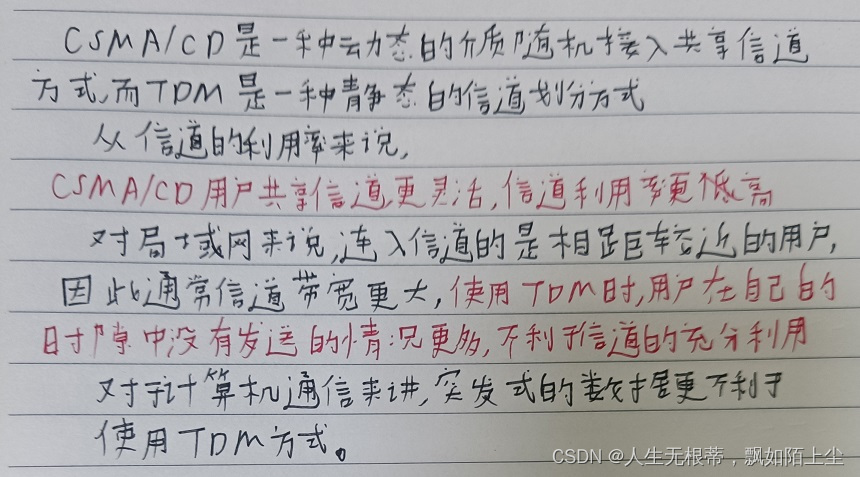 CSMA/CD是一种动态的介质随机接入共享信道
方式,而TDM是一种静态的信道划分方式
从信道的利用率来说,
CSMA/CD用户共享信道,更灵活,信道利用率更高
对局域网来说,连入信道的是相距较近的用户,
因此通常信道带宽更大,使用TDM时,用户在自己的
时隙中没有发送的情况更多,不利于信道的充分利用
对于计算机通信来讲,突发式的数据更不利于
使用TDM方式。
CSDN @人生无根蒂，飘如陌上尘